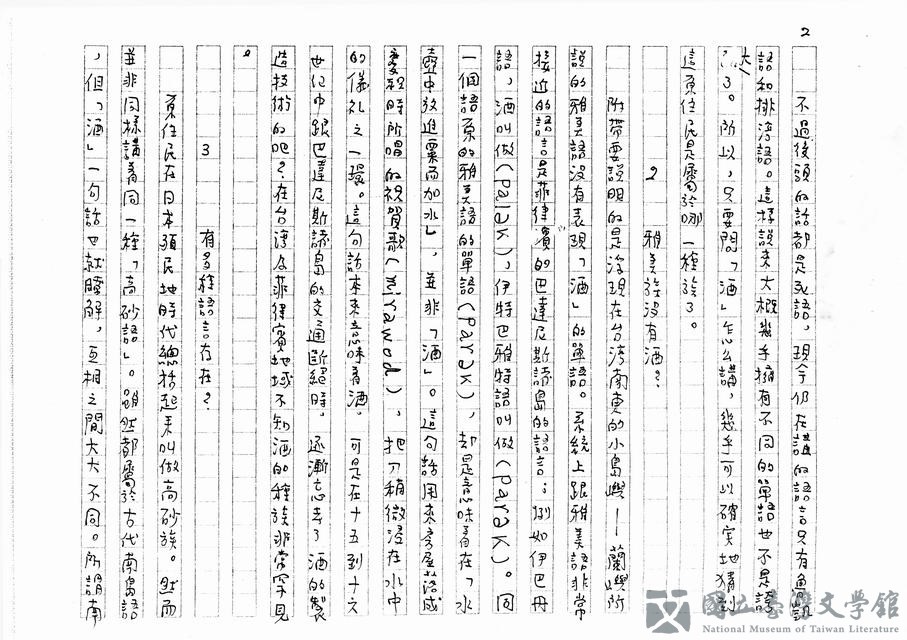 2
不過後頭的話都是死語,現今仍在講的語言只有魯凱
語和排灣語。這樣說來大概幾乎擁有不同的單語也不是誇
大了。所以,只要問「酒」怎么講,幾乎可以確实地猜到
這原住民是屬於哪一種族了。
2 雅美族沒有酒?
附带要說明的是浮現在台湾南東的小島嶼——蘭嶼所
說的雅美語沒有表現「酒」的單語。系統上跟雅美語非常
接近的語言是菲律濱的巴達尼斯諸島的語言;例如伊巴丹
語,酒叫做(Palak),伊特巴雅特語叫做(Parak)。同
一個語原的雅美語的單語(Parak),却是意味着在「水
壺中放進粟而加水」,並非「酒」。這句話用來房屋落成
慶祝時所唱的祝賀歌(mirawod),把刀稍微浸在水中
的儀礼之一環。這句話本來意味着酒。可是在十五到十六
世纪中跟巴達尼斯諸島的交通斷絕時,逐漸忘去了酒的製
造技術的吧?在台湾及菲律賓地域不知酒的種族非常罕見
。
3 有多種語言存在?
原住民在日本殖民地時代總括起來叫做高砂族。然而
並非同樣講着同一種「高砂語」。雖然都屬於古代南島語
,但「酒」一句話也就瞭解,互相之間大大不同。所謂南
國立臺灣文學館
National Museum of Taiwan Literature